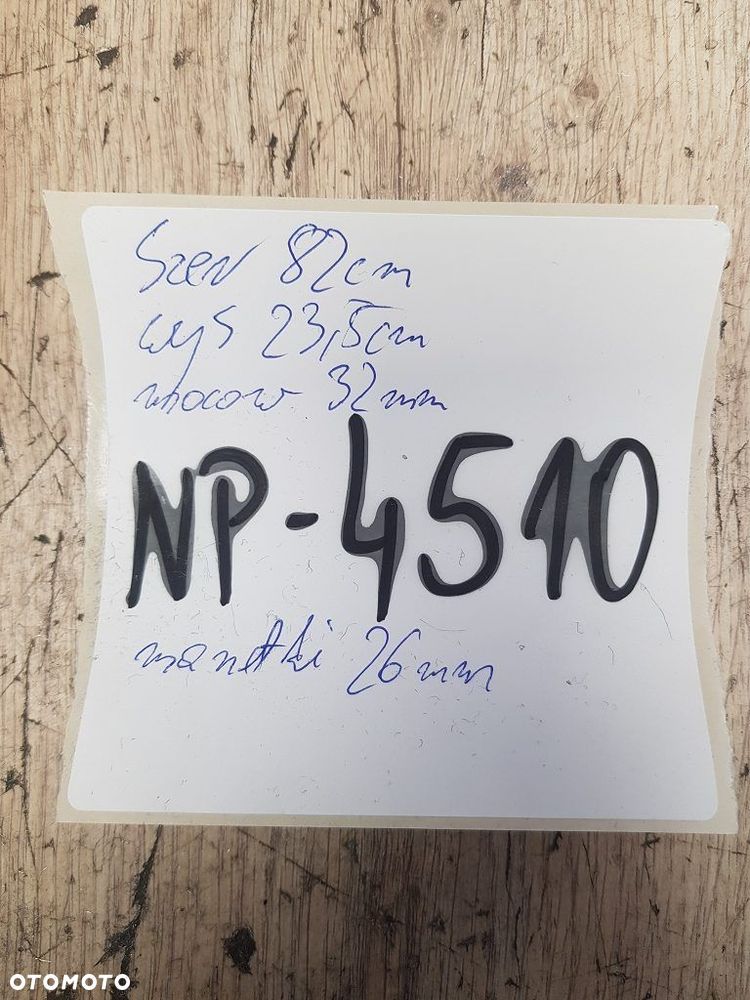 Szer 82cm
wys 23,5cm
mocow 32mm
NP-4510
manetki 26mm
OTOMOTO